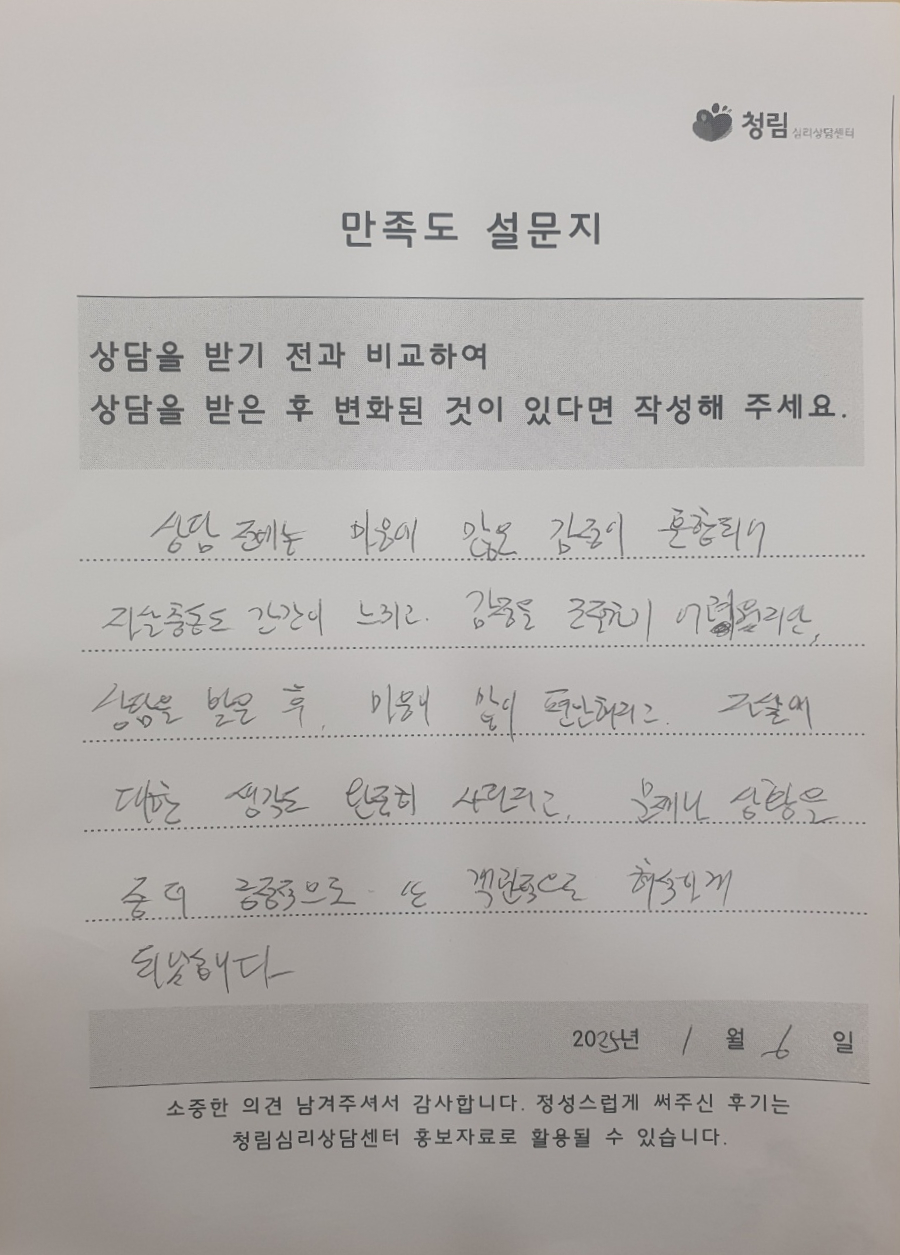 청림 심리상담센터
만족도 설문지
상담을 받기 전과 비교하여
상담을 받은 후 변화된 것이 있다면 작성해 주세요.
상담 전에는 마음에 많은 감정이 혼합되어
자살충동도 간간이 느끼고. 감정을 조절하기 어려웠지만,
상담을 받은 후, 마음이 많이 편안해지고. 자살에
대한 생각도 완전히 사라지고, 문제나 상황을
좀 더 긍정적으로 또 객관적으로 해석하게
되남습니다
2025년 1 월 6 일
소중한 의견 남겨주셔서 감사합니다. 정성스럽게 써주신 후기는
청림심리상담센터 홍보자료로 활용될 수 있습니다.